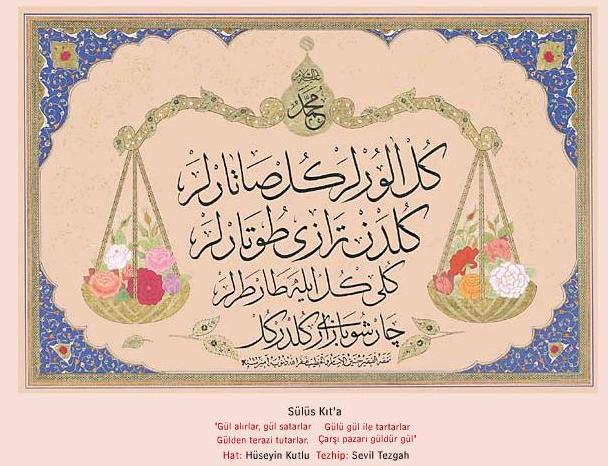 محمد
كل الورلر كل صاتارلر
كلدن ترازى طوتارلر
كلى كل ايله طارطرلر
چارشو بازارى كلدر كل
Sülüs Kıt'a
"Gül alırlar, gül satarlar Gülü gül ile tartarlar
Gülden terazi tutarlar. Çarşı pazarı güldür gül"
Hat: Hüseyin Kutlu Tezhip: Sevil Tezgah